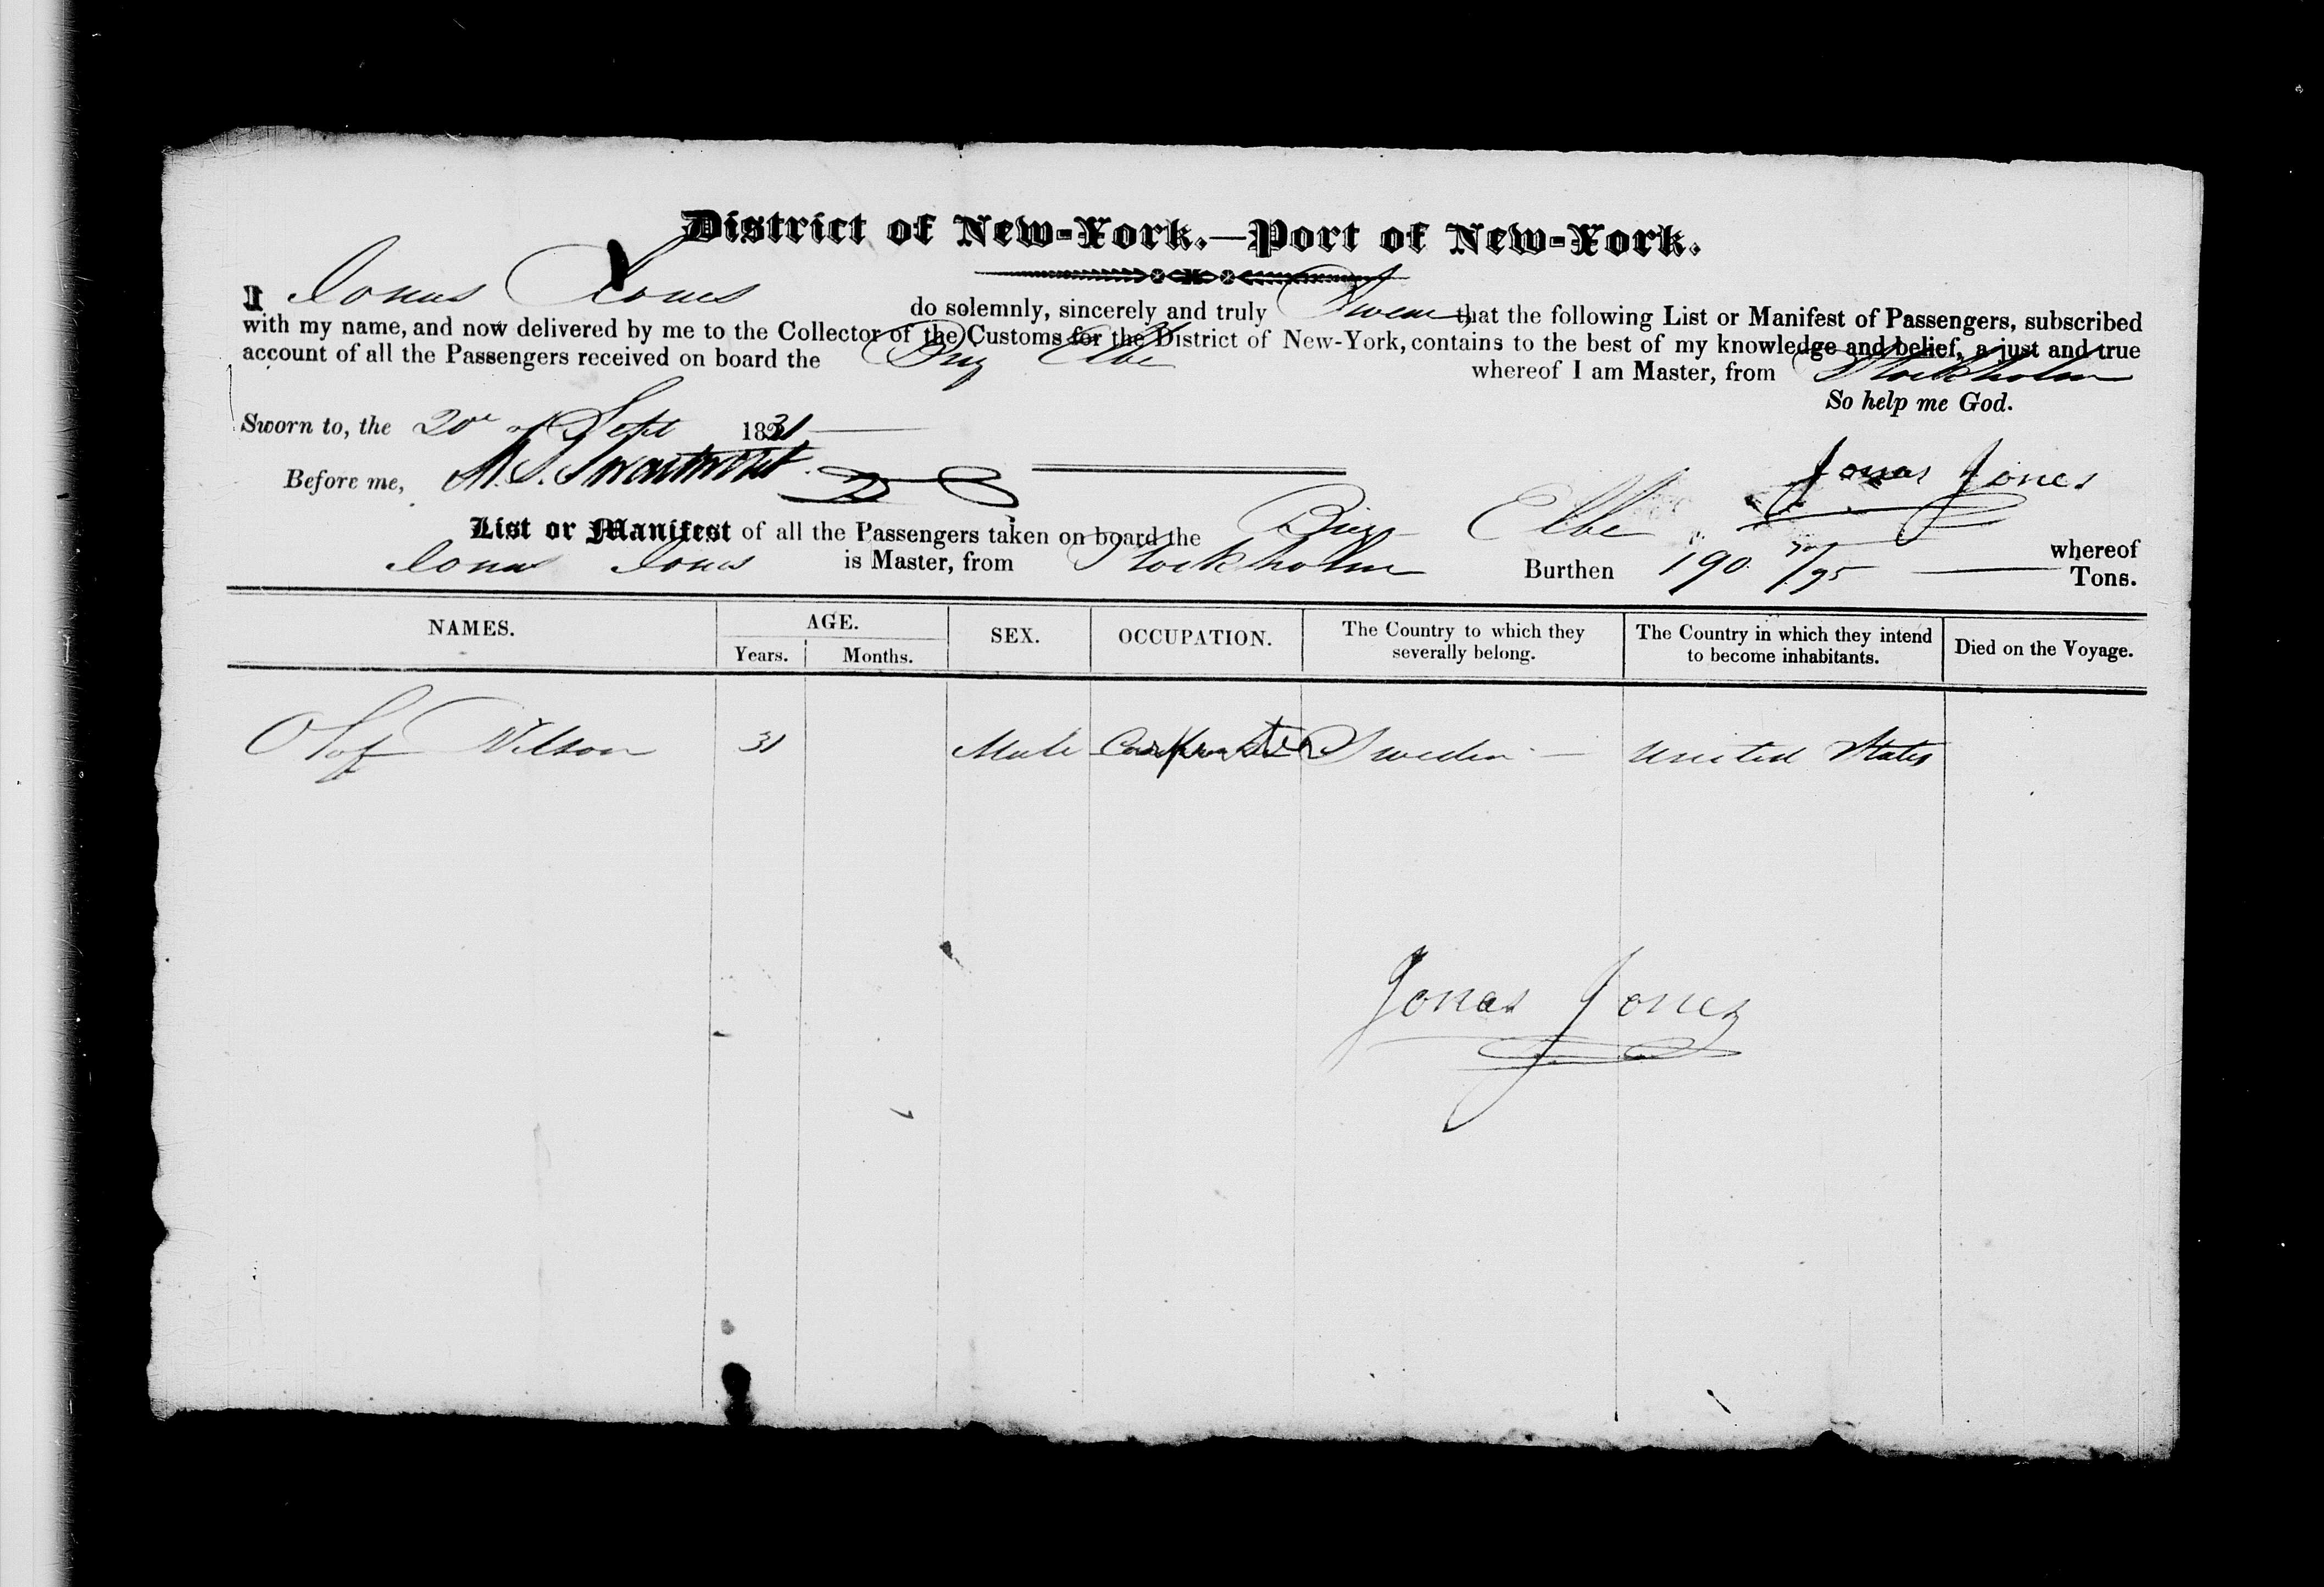 District of New-York.—Port of New-York.
I Jonas Jones do solemnly, sincerely and truly Swear that the following List or Manifest of Passengers, subscribed
with my name, and now delivered by me to the Collector of the Customs for the District of New-York, contains to the best of my knowledge and belief, a just and true
account of all the Passengers received on board the Brig Elbe whereof I am Master, from Stockholm
So help me God.
Sworn to, the 20 of Sept 1831
Jonas Jones
Before me, Swartwout
List or Manifest of all the Passengers taken on board the Brig Elbe whereof
Jonas Jones is Master, from Stockholm Burthen 190 /95 Tons.
NAMES. AGE. SEX. OCCUPATION. The Country to which they severally belong. The Country in which they intend to become inhabitants. Died on the Voyage.
Years. Months.
Olof Nilson 31 Male Carpenter Sweden — United States
Jonas Jones